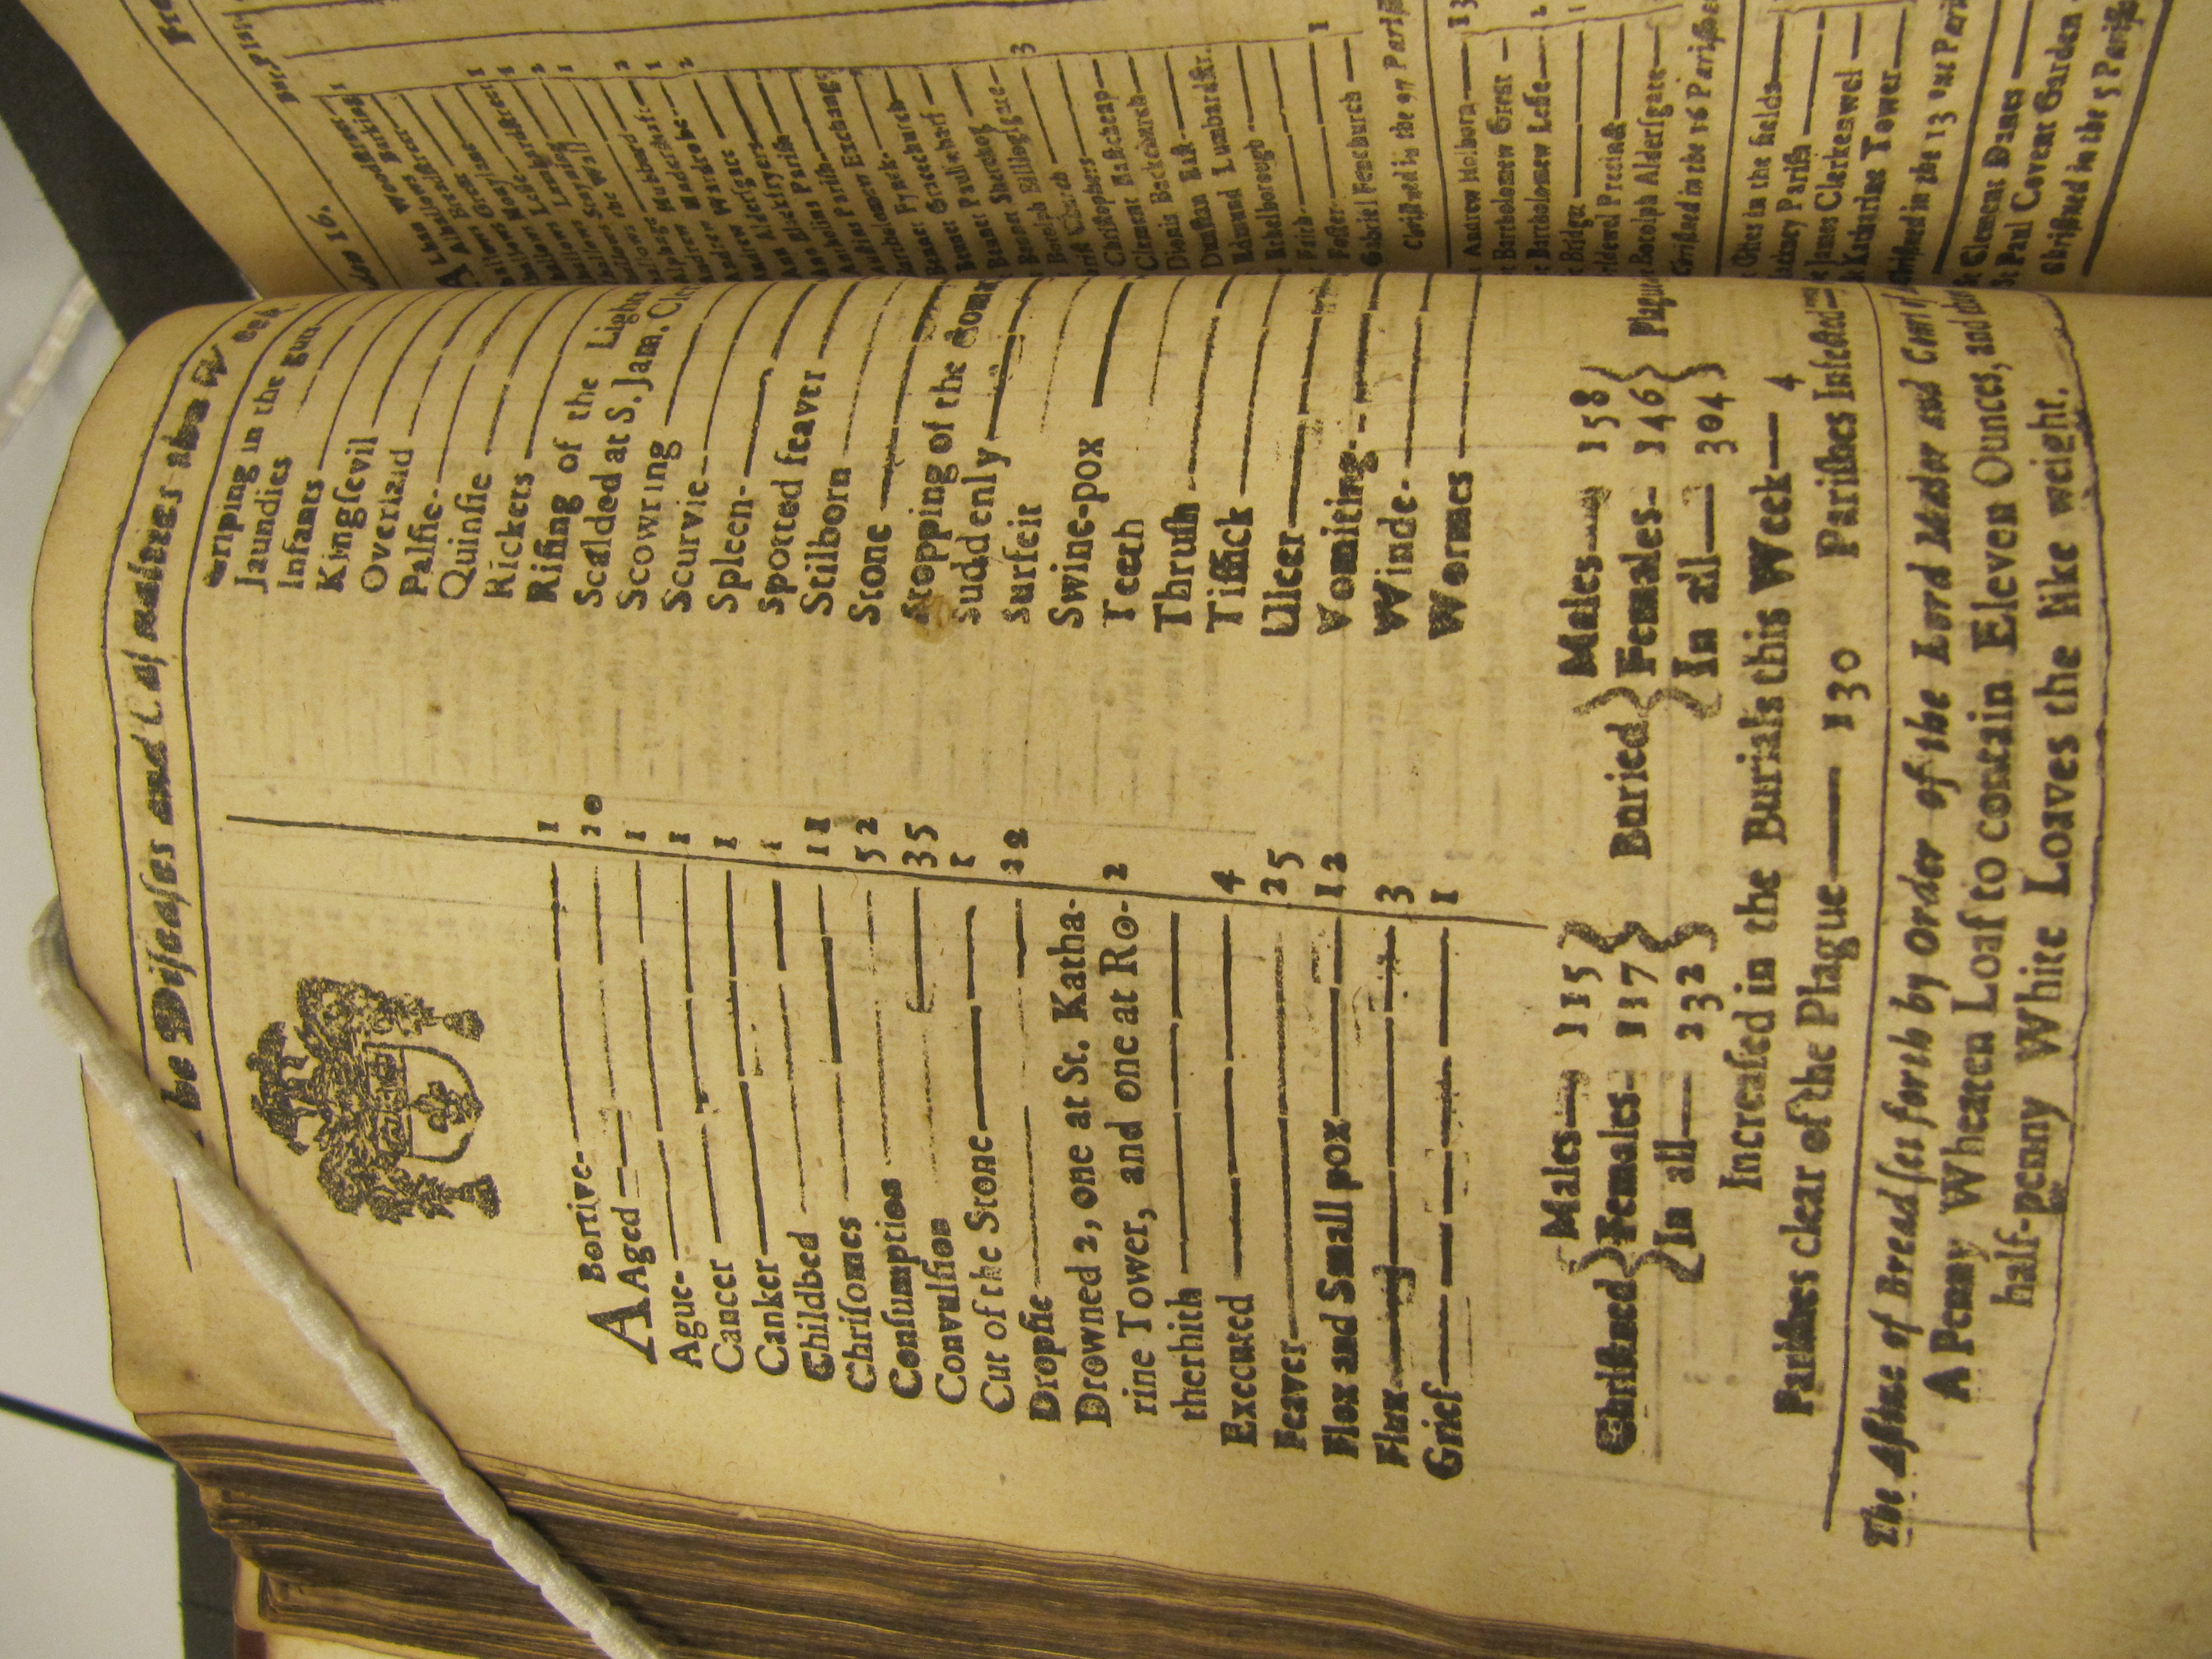 The Diseases and Casualties this Week.
Abortive 1
Aged 20
Ague 1
Cancer 1
Canker 1
Childbed 1
Chrisomes 11
Consumption 52
Convulsion 35
Cut of the Stone 1
Dropsie 22
Drowned 2, one at St. Katha-
rine Tower, and one at Ro- 2
therhith
Executed 4
Feaver 25
Flox and Small pox 12
Flux 3
Grief 1
Griping in the gu
Jaundies
Infants
Kingsevil
Overlaid
Palsie
Quinsie
Rickets
Rising of the Ligh
Scalded at S. Jam. Cl
Scowring
Scurvie
Spleen
Spotted feaver
Stilborn
Stone
Stopping of the stom
Suddenly
Surfeit
Swine-pox
Teeth
Thrush
Tissick
Ulcer
Vomiting
Winde
Wormes
Christned Males 115 Females 117 In all 232
Buried Males 158 Females 146 In all 304 Plague
Increased in the Burials this Week 4
Parishes clear of the Plague 130 Parishes Infected
The Assize of Bread set forth by Order of the Lord Maior and Court of
A Penny Wheaten Loaf to contain Eleven Ounces, and three
half-penny White Loaves the like weight.
16.
Bur. Pla
Alban Woodstreet 1
Alhallows Barking
Alhallows Great
Alhallows Lumbardst
Alhallows Staining
Alhallows the Wall
Andrew Hubbard
Andrew Undershaft
Andrew Wardrobe 2
Ann Aldersgate
Ann Blackfryers
Antholins Parish
Austins Parish
Bartholomew Exchange
Bennet Fynck
Bennet Gracechurch
Bennet Paulswharf
Bennet Sherehog
Botolph Billingsgate
Christs Church 3
Christophers
Clement Eastcheap
Dionis Backchurch
Dunstan East
Edmund Lumbardstr.
Ethelborough
Faith
Foster 1
Gabriel Fenchurch
Christned in the 97 Parishes
Andrew Holborn 13
Bartholomew Great
Bartholomew Lesse 2
Bridget
Bridewel Precinct
Botolph Aldersgate
Christned in the 16 Parishes
Giles in the fields
Hackney Parish
James Clerkenwel
Katharine Tower
Christned in the 13 out Pari
Clement Danes
St Paul Covent Garden
Christned in the 5 Parish